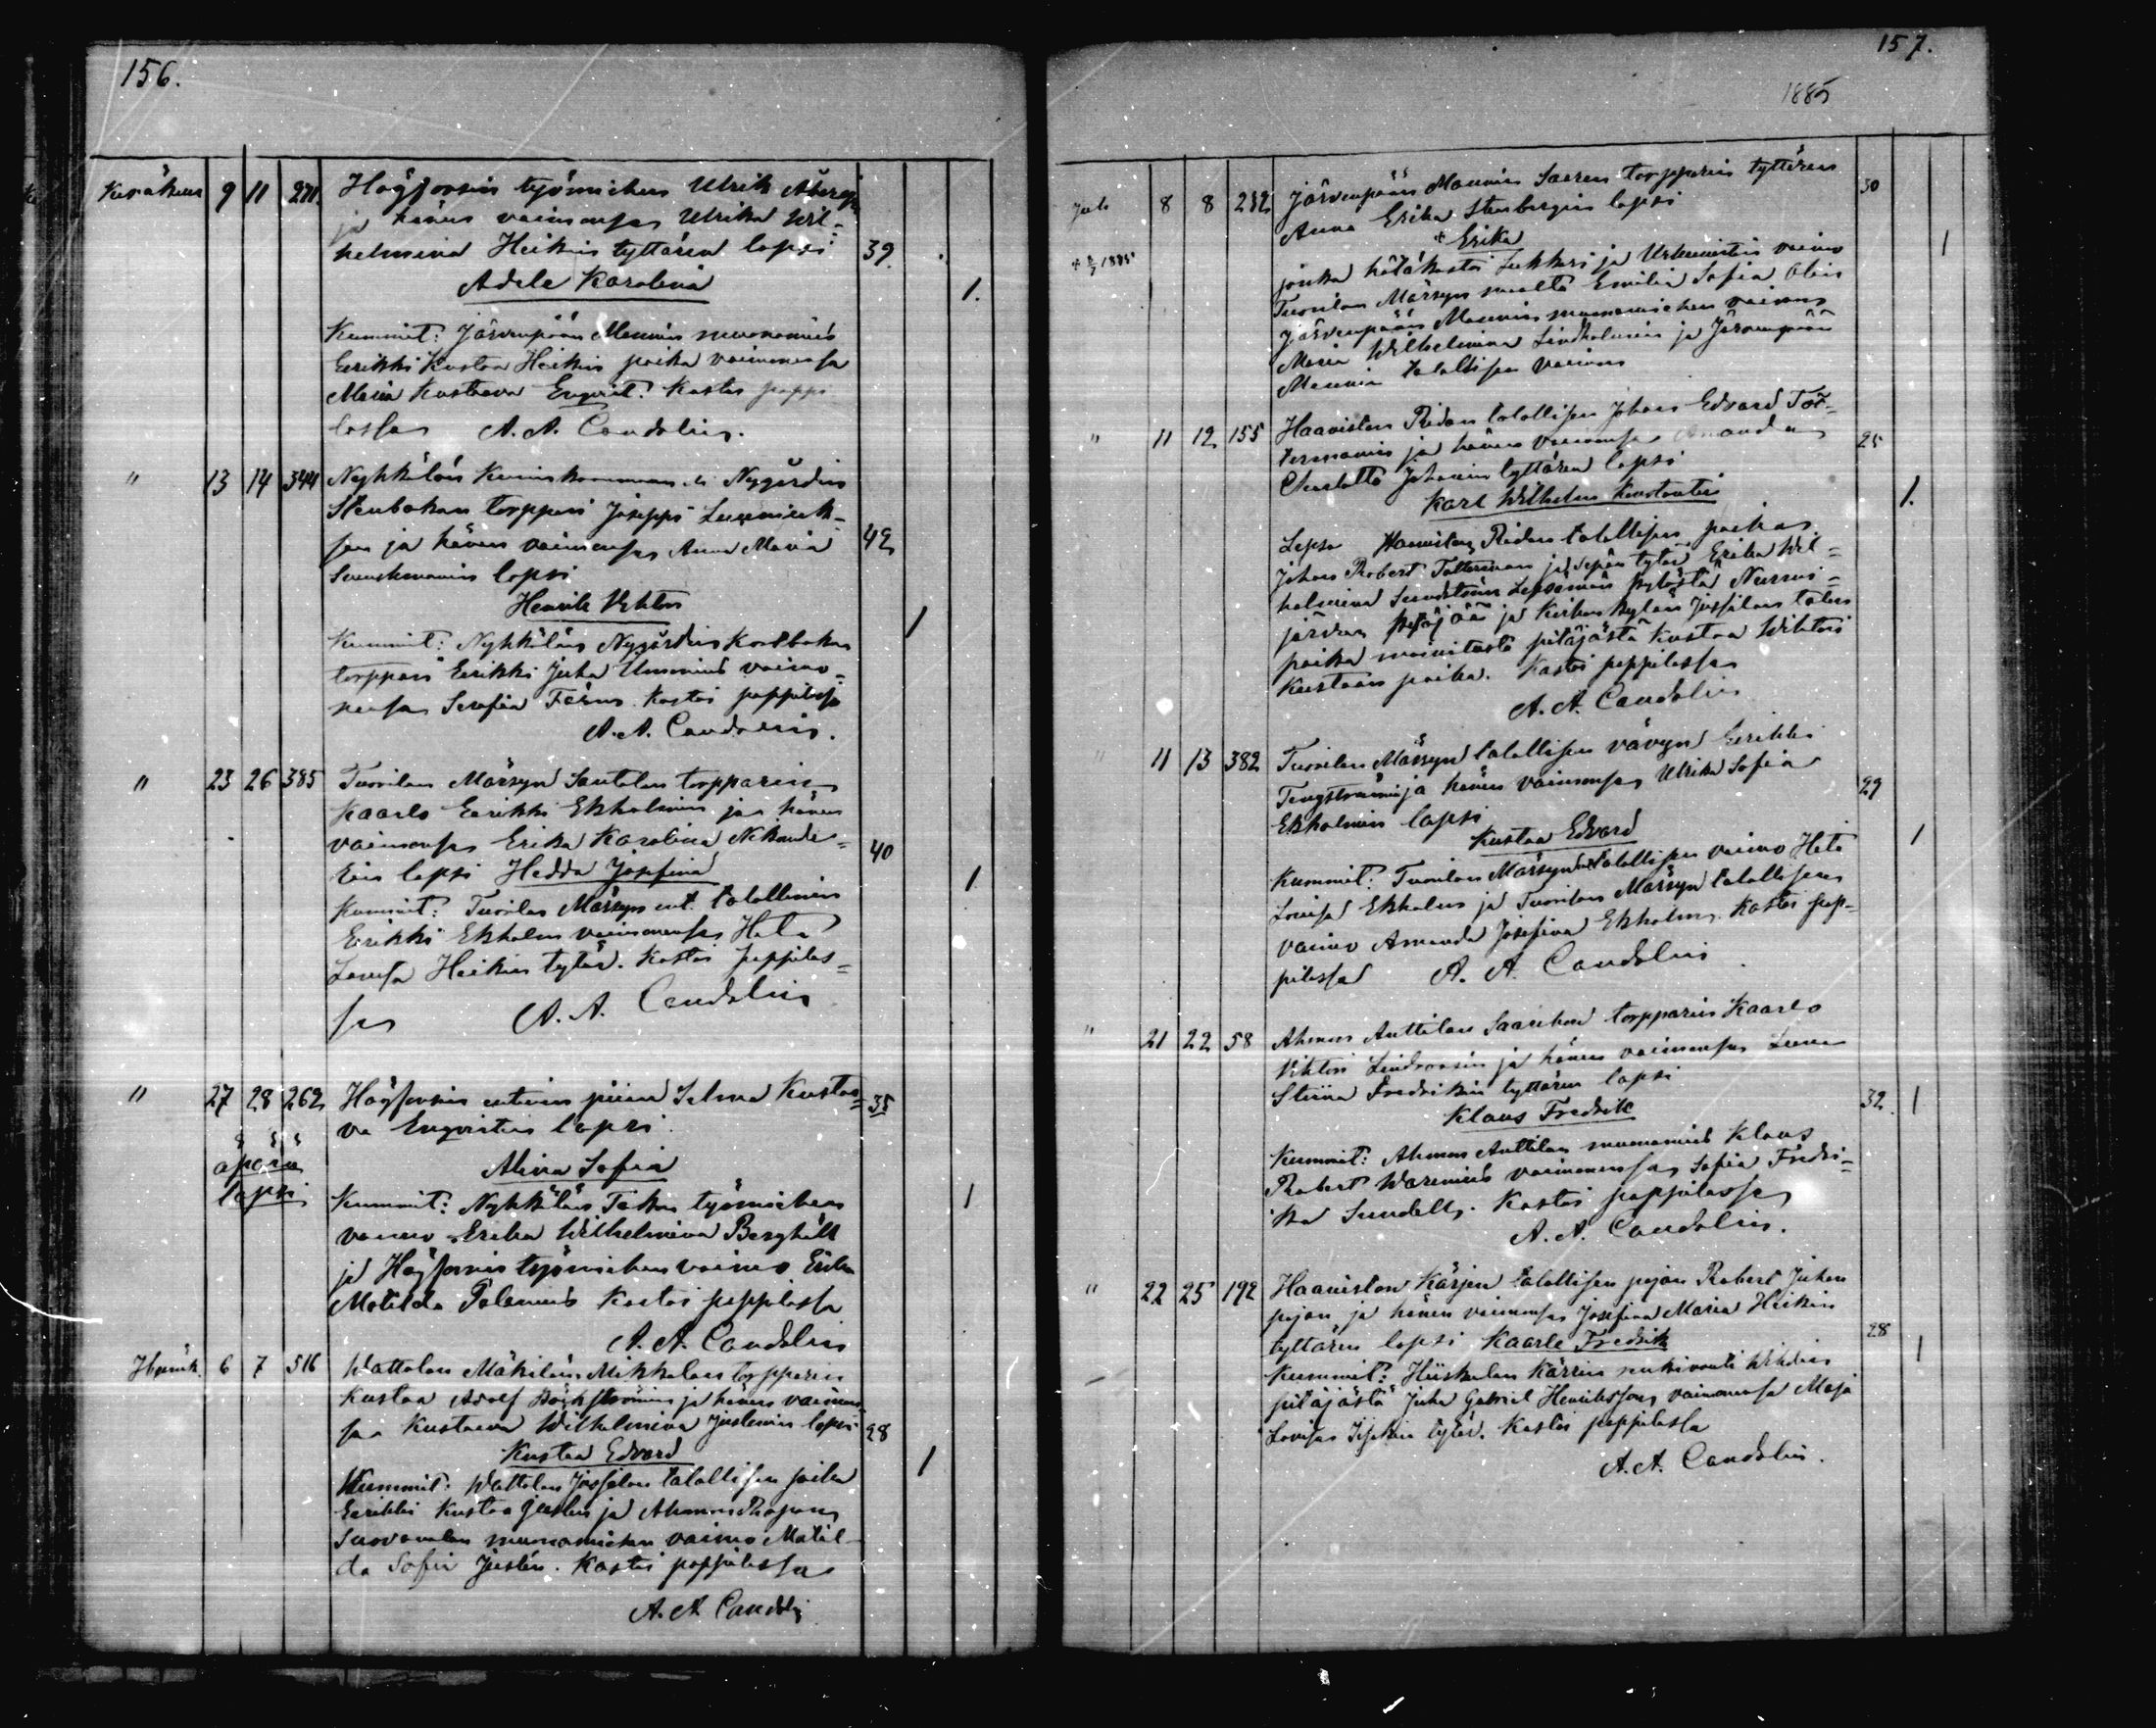 156.
Kesäkuu 9 11 271. Högforsin työmiehen Ulrik
ja hänen vaimonsa Ulrika Wil-
helmina Heikin tyttären lapsi 39.
Adele Karolina 1.
Kummit: Järvenpään Mannin muonamies
Eerikki Kustaa Heikin poika vaimonensa
Maria Kustaava Enqvist. Kastoi pappi
lassa A. A. Candolin.
" 13 14 344 Nyhkälän Nygårdin
Stenbakan torppari Joseppi
son ja hänen vaimonsa Anna Maria 42
lapsi
Henrik Viktor 1
Kummit: Nyhkälän Nygårdin Korsbakan
torppari Eerikki Juha vaimo-
nensa Serafia Kastoi pappilassa
A. A. Candolin.
" 23 26 385 Tuorilan Mårsyn Santalan torpparin
Kaarlo Eerikki Ekholmin ja hänen
vaimonsa Erika Karolina Nikande- 40
rin lapsi Hedda Josefina 1
Kummit: Tuorilan Mårsyn ent. talollinen
Eerikki Ekholm vaimonensa Heta
Lovisa Heikin tytär. Kastoi pappilas-
sa A. A. Candolin
" 27 28 262 Högforsin entisen piian Selma Kustaa- 35
va Enqvistin lapsi.
äpärä
lapsi
Alina Sofia 1
Kummit: Nyhkälän työmiehen
vaimo Erika Wilhelmina Berghäll
ja Högforsin työmiehen vaimo Erika
Matilda Palenius Kastoi pappilassa
A. A. Candolin
Heinäk. 6 7 516 Wattolan Mäkilän Mikkolan torpparin
Kustaa Adolf ja hänen vaimon-
sa Kustaava Wilhelmina Juslenin lapsi 28
Kustaa Edvard 1
Kummit: Wattolan Jussilan talollisen poika
Eerikki Kustaa Juslen ja Ahmoon
muonamiehen vaimo Matil-
da Sofia Juslén. Kastoi pappilassa
A. A. Candolin
157.
1885
8 8 232 Järvenpään Mannin Saaren torpparin tyttären 30
Anna Erika Stenbergin lapsi
+ Erika 1
1885 jonka hätäkastoi Lukkari ja Urkunistin vaimo
Tuorilan Mårsyn maalta Emilia Sofia
Järvenpään Mannin muonamiehen vaimo
Maria Wilhelmina Lindholmin ja Järvenpään
Mannin talollisen vaimo
" 11 12 155 Haaviston Ridan talollisen Johan Edvard Töt-
termanin ja hänen vaimonsa Amanda 25
Charlotta Johanin tyttären lapsi
Karl Wilhelm Konstantin 1.
Haaviston Ridan talollisen poika
Johan Robert Tötterman ja Sepän tytär Erika Wil-
helmina Lepsämän kylästä Nurmi-
järven pitäjää ja Kirkon kylän Jussilan talon
poika mainitusta pitäjästä Kustaa Wihtori
Kustaan poika. Kastoi pappilassa
A. A. Candolin
" 11 13 382 Tuorilan Mårsyn talollisen vävyn Eerikki
Tengströmin ja hänen vaimonsa Ulrika Sofia 29
Ekholmin lapsi
Kustaa Edvard 1
Kummit: Tuorilan Mårsyn talollisen vaimo Heta
Lovisa Ekholm ja Tuorilan Mårsyn talollisen
vaimo Amanda Josefina Ekholm. Kastoi pap-
pilassa A. A. Candolin
" 21 22 58 Ahmoon Anttilan torpparin Kaarlo
Viktor Lindroosin ja hänen vaimonsa Leena
Stiina Fredrikin tyttären lapsi
Klaus Fredrik 32. 1
Kummit: Ahmoon Anttilan muonamies Klaus
Robert Warenius vaimonensa Sofia Fredri-
ka Sundell. Kastoi pappilassa
A. A. Candolin.
" 22 25 192 Haaviston Kärjen talollisen pojan Robert Juhon
pojan ja hänen vaimonsa Josefina Maria Heikin
tyttären lapsi Kaarle Fredrik 28 1
Kummit: Hiiskulan Kärrin renkivouti Wihdin
pitäjästä Juha Gabriel Henriksson vaimonensa Maja
Lovisa tytär. Kastoi pappilassa
A. A. Candolin.